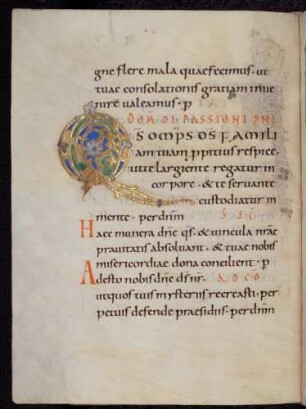 gne flere mala quae fecimus · ut
tuae consolationis gratiam inue
nire ualeamus · p
DOM DE PASSIONE DNI
QS OMPS DS FAMILI
am tuam ppitius respice ·
ut te largiente regatur in
corpore · & te seruante
custodiatur in
mente · per dnm SEC
Haec munera dne qs · & uincula nrae
prauitatis absoluant · & tuae nobis
misericordiae dona concilient · p
Adesto nobis dne ds nr · AD CO
ut quos tuis mysteriis recreasti · per
petuis defende praesidiis · per dnm